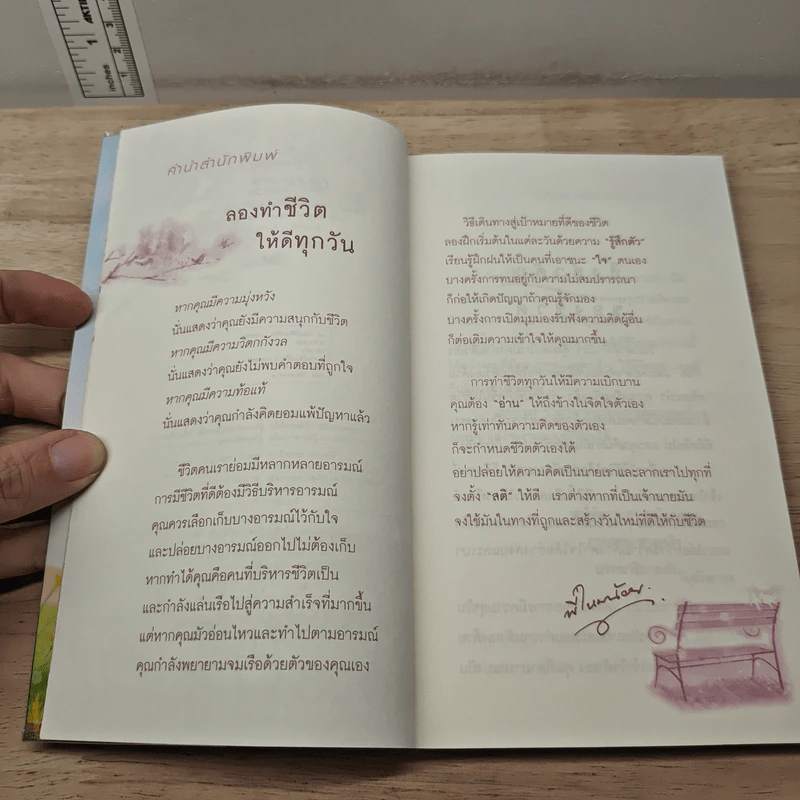 คำนำสำนักพิมพ์
ลองทำชีวิต
ให้ดีทุกวัน
หากคุณมีความมุ่งหวัง
นั่นแสดงว่าคุณยังมีความสนุกกับชีวิต
หากคุณมีความวิตกกังวล
นั่นแสดงว่าคุณยังไม่พบคำตอบที่ถูกใจ
หากคุณมีความท้อแท้
นั่นแสดงว่าคุณกำลังคิดยอมแพ้ปัญหาแล้ว
ชีวิตคนเราย่อมมีหลากหลายอารมณ์
การมีชีวิตที่ดีต้องมีวิธีบริหารอารมณ์
คุณควรเลือกเก็บบางอารมณ์ไว้กับใจ
และปล่อยบางอารมณ์ออกไปไม่ต้องเก็บ
หากทำได้คุณคือคนที่บริหารชีวิตเป็น
และกำลังแล่นเรือไปสู่ความสำเร็จที่มากขึ้น
แต่หากคุณมัวอ่อนไหวและทำไปตามอารมณ์
คุณกำลังพยายามจมเรือด้วยตัวของคุณเอง
วิธีเดินทางสู่เป้าหมายที่ดีของชีวิต
ลองฝึกเริ่มต้นในแต่ละวันด้วยความ "รู้สึกตัว"
เรียนรู้ฝึกฝนให้เป็นคนที่เอาชนะ "ใจ" ตนเอง
บางครั้งการทนอยู่กับความไม่สมปรารถนา
ก็ก่อให้เกิดปัญญาถ้าคุณรู้จักมอง
บางครั้งการเปิดมุมมองรับฟังความคิดผู้อื่น
ก็ต่อเติมความเข้าใจให้คุณมากขึ้น
การทำชีวิตทุกวันให้มีความเบิกบาน
คุณต้อง "อ่าน" ให้ถึงข้างในจิตใจตัวเอง
หากรู้เท่าทันความคิดของตัวเอง
ก็จะกำหนดชีวิตตัวเองได้
อย่าปล่อยให้ความคิดเป็นนายเราและลากเราไปทุกที่
จงตั้ง "สติ" ให้ดี เราต่างหากที่เป็นเจ้านายมัน
จงใช้มันในทางที่ถูกและสร้างวันใหม่ที่ดีให้กับชีวิต
inches
1
2
3